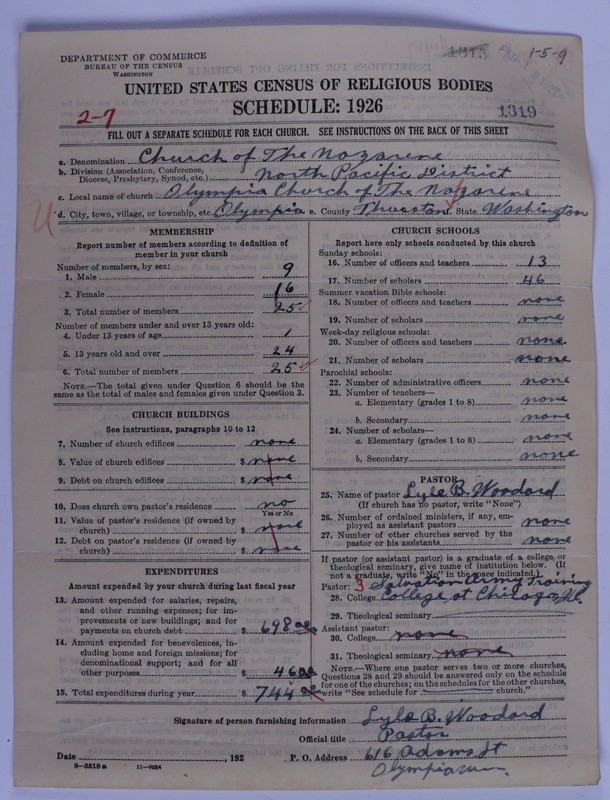 1315
1-5-9
DEPARTMENT OF COMMERCE
BUREAU OF THE CENSUS
WASHINGTON
UNITED STATES CENSUS OF RELIGIOUS BODIES
SCHEDULE: 1926
2-7
1319
FILL OUT A SEPARATE SCHEDULE FOR EACH CHURCH. SEE INSTRUCTIONS ON THE BACK OF THIS SHEET
a. Denomination Church of The Nazarene
b. Division (Association, Conference, Diocese, Presbytery, Synod, etc.) North Pacific District
c. Local name of church Olympia Church of The Nazarene
d. City, town, village, or township, etc. Olympia e. County Thurston f. State Washington
MEMBERSHIP
Report number of members according to definition of
member in your church
Number of members, by sex:
1. Male 9
2. Female 16
3. Total number of members 25
Number of members under and over 13 years old:
4. Under 13 years of age 1
5. 13 years old and over 24
6. Total number of members 25
NOTE.—The total given under Question 6 should be the
same as the total of males and females given under Question 3.
CHURCH BUILDINGS
See instructions, paragraphs 10 to 12
7. Number of church edifices none
8. Value of church edifices $ none
9. Debt on church edifices $ none
10. Does church own pastor's residence? no
Yes or No
11. Value of pastor's residence (if owned by
church) $ none
12. Debt on pastor's residence (if owned by
church) $ none
EXPENDITURES
Amount expended by your church during last fiscal year
13. Amount expended for salaries, repairs,
and other running expenses; for im-
provements or new buildings; and for
payments on church debt $ 698.00
14. Amount expended for benevolences, in-
cluding home and foreign missions; for
denominational support; and for all
other purposes $ 46.00
15. Total expenditures during year $ 744.00
CHURCH SCHOOLS
Report here only schools conducted by this church
Sunday schools:
16. Number of officers and teachers 13
17. Number of scholars 46
Summer vacation Bible schools:
18. Number of officers and teachers none
19. Number of scholars none
Week-day religious schools:
20. Number of officers and teachers none
21. Number of scholars none
Parochial schools:
22. Number of administrative officers none
23. Number of teachers—
a. Elementary (grades 1 to 8) none
b. Secondary none
24. Number of scholars—
a. Elementary (grades 1 to 8) none
b. Secondary none
PASTOR
25. Name of pastor Lyle B. Woodard
(If church has no pastor, write "None")
26. Number of ordained ministers, if any, em-
ployed as assistant pastors none
27. Number of other churches served by the
pastor or his assistants none
If pastor (or assistant pastor) is a graduate of a college or
theological seminary, give name of institution below. (If
not a graduate, write "No" in the space indicated.)
Pastor: 3 Salvation Army Training
28. College College at Chicago, Ill.
29. Theological seminary
Assistant pastor:
30. College none
31. Theological seminary none
NOTE.—Where one pastor serves two or more churches,
Questions 28 and 29 should be answered only on the schedule
for one of the churches; on the schedules for the other churches,
write "See schedule for church."
Signature of person furnishing information Lyle B. Woodard
Official title Pastor
Date , 192 P. O. Address 616 Adams St
8—5518 a 11—9054
Olympia Wn.